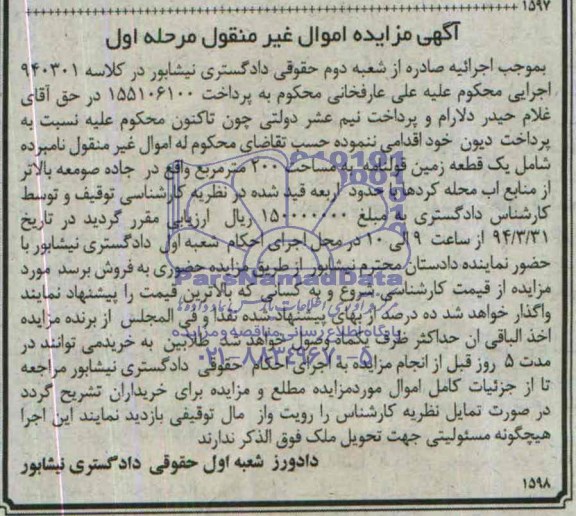 ۱۵۹۷
آگهی مزایده اموال غیر منقول مرحله اول
بموجب اجرائیه صادره از شعبه دوم حقوقی دادگستری نیشابور در کلاسه ۹۴۰۳۰۱
اجرایی محکوم علیه علی عارفخانی محکوم به پرداخت ۱۵۵۱۰۶۱۰۰ در حق آقای
غلام حیدر دلارام و پرداخت نیم عشر دولتی چون تاکنون محکوم علیه نسبت به
پرداخت دیون خود اقدامی ننموده حسب تقاضای محکوم له اموال غیر منقول نامبرده
شامل یک قطعه زمین قولنامه به مساحت ۲۰۰ مترمربع واقع در جاده صومعه بالاتر
از منابع اب محله کردها با حدود اربعه قید شده در نظریه کارشناسی توقیف و توسط
کارشناس دادگستری به مبلغ ۱۵۰۰۰۰۰۰۰ ریال ارزیابی مقرر گردید در تاریخ
۹۴/۳/۳۱ از ساعت ۹ الی ۱۰ در محل اجرای احکام شعبه اول دادگستری نیشابور با
حضور نماینده دادستان محترم نیشابور از طریق مزایده حضوری به فروش برسد مورد
مزایده از قیمت کارشناسی شروع و به کسانی که بالاترین قیمت را پیشنهاد نمایند
واگذار خواهد شد ده درصد از بهای پیشنهاد شده نقدا و فی المجلس از برنده مزایده
اخذ الباقی ان حداکثر ظرف یکماه وصول خواهد شد طلابین به خریدمی توانند در
مدت ۵ روز قبل از انجام مزایده به اجرای احکام حقوقی دادگستری نیشابور مراجعه
تا از جزئیات کامل اموال موردمزایده مطلع و مزایده برای خریداران تشریح گردد
در صورت تمایل نظریه کارشناس را رویت واز مال توقیفی بازدید نمایند این اجرا
هیچگونه مسئولیتی جهت تحویل ملک فوق الذکر ندارند
دادورز شعبه اول حقوقی دادگستری نیشابور
۱۵۹۸
ParsNamadData
پایگاه اطلاع رسانی مناقصه و مزایده
۰۲۱-۸۸۳۴۹۶۷۰-۵